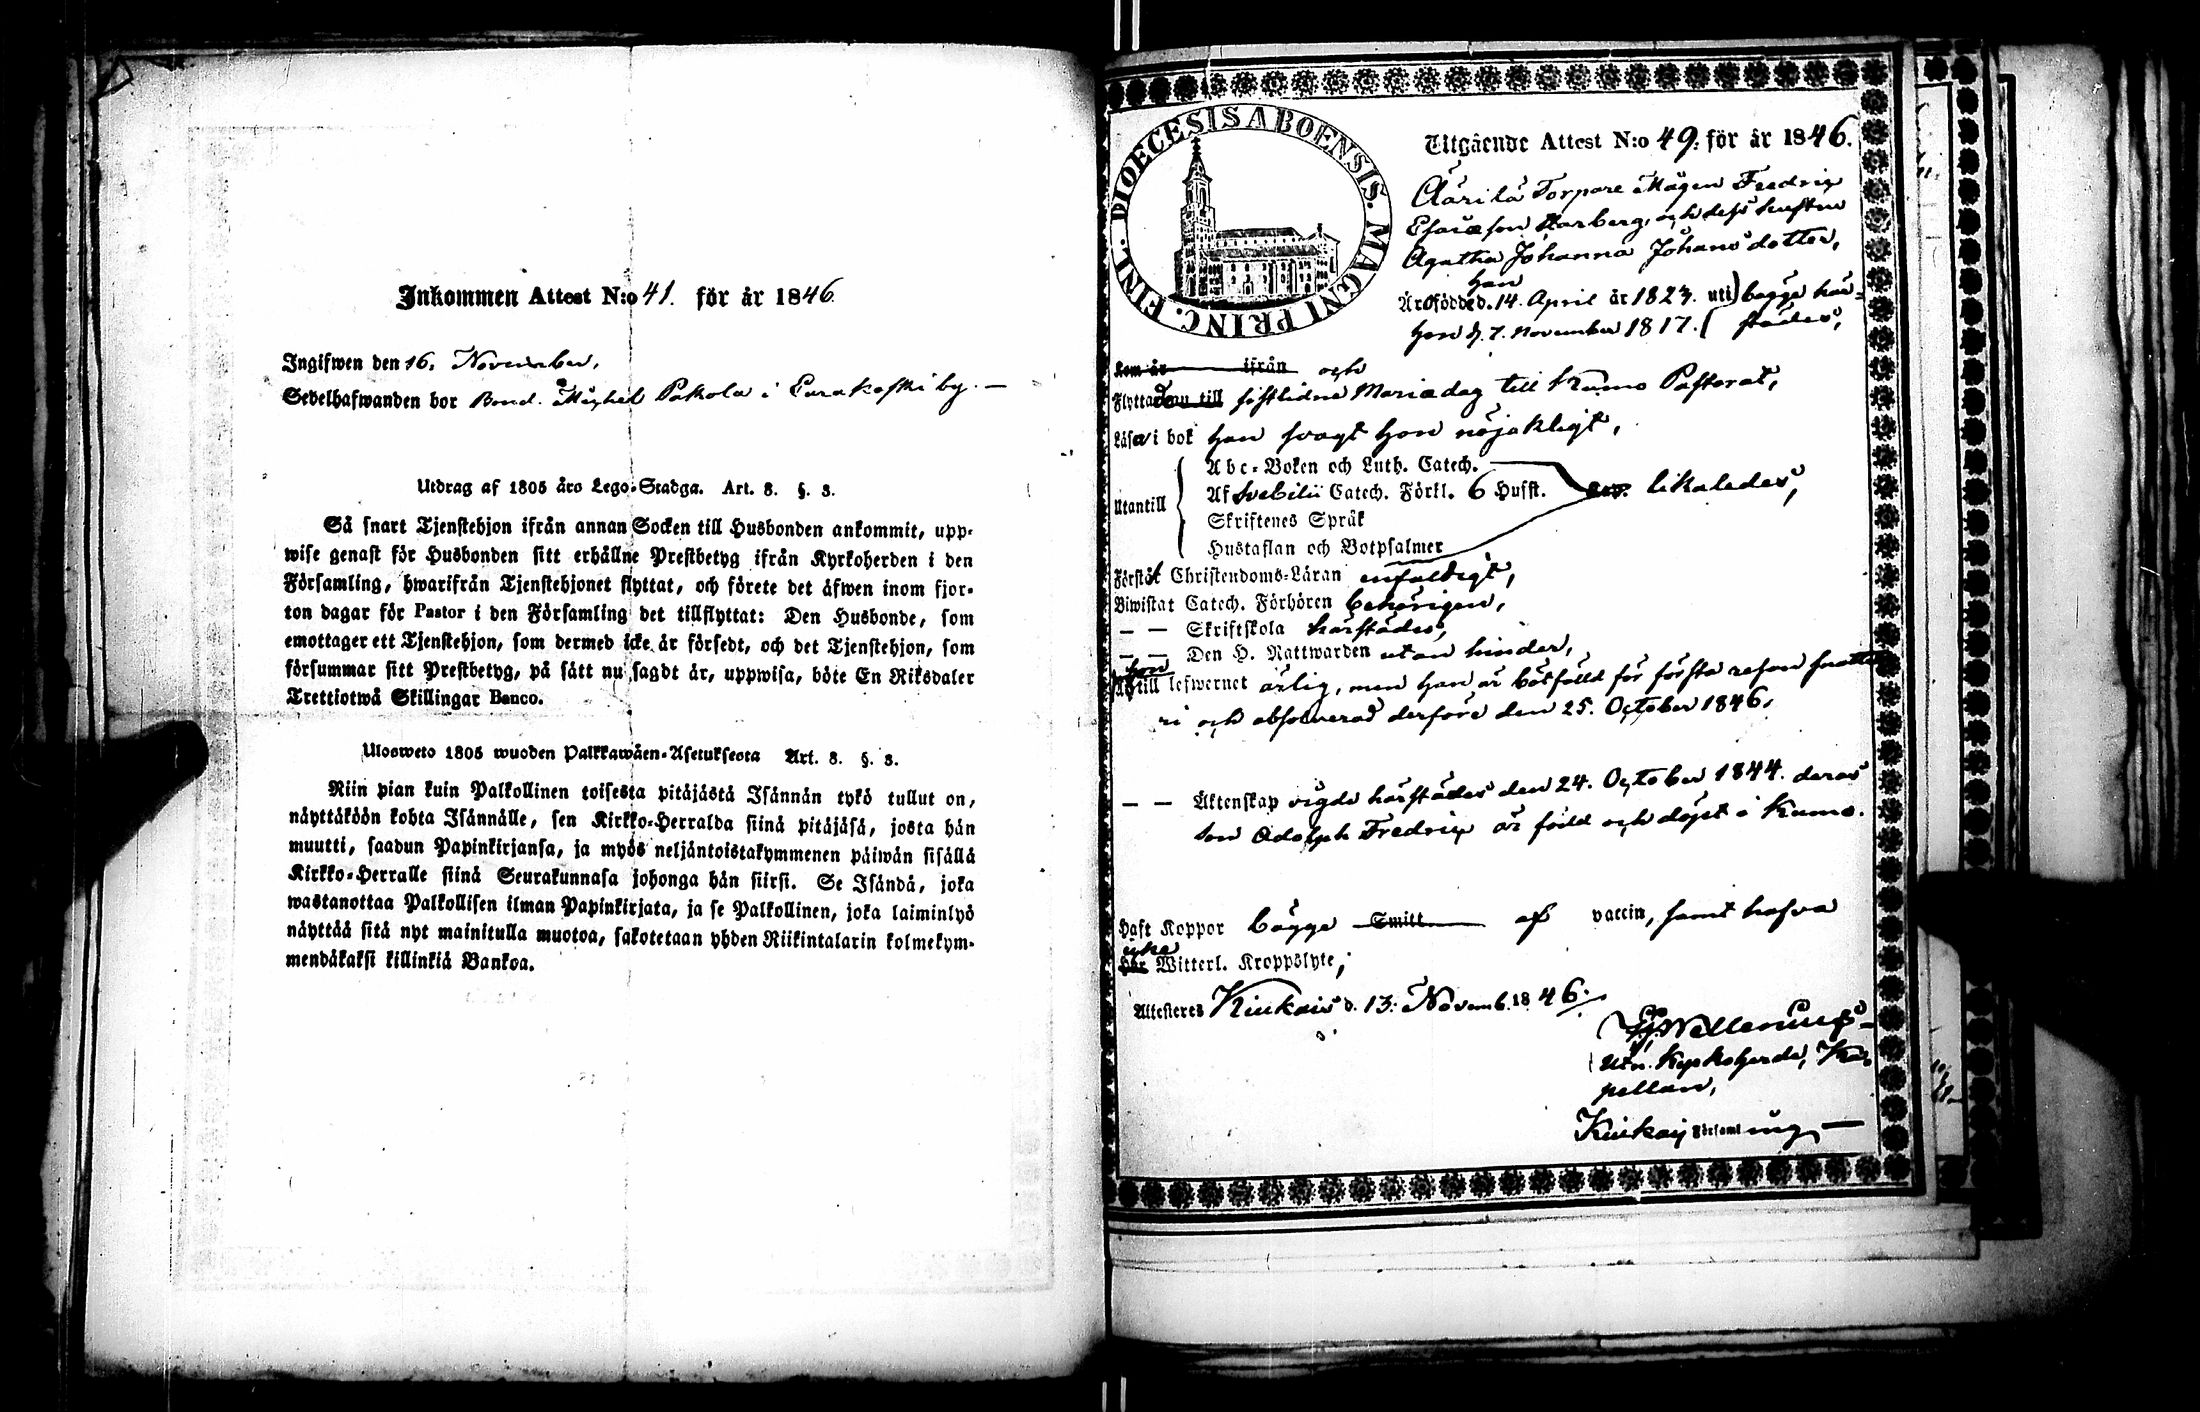 Inkommen Attest N:o 41. för år 1846.
Ingifwen den 16. November.
Sedelhafwanden bor Bond. Mickel Pakola i Eurakoski by. —
Utdrag af 1805 års Lego-Stadga. Art. 8. §. 3.
Så snart Tjenstehjon ifrån annan Socken till Husbonden ankommit, upp-
wise genast för Husbonden sitt erhållne Prestbetyg ifrån Kyrkoherden i den
Församling, hwarifrån Tjenstehjonet flyttat, och förete det äfwen inom fjor-
ton dagar för Pastor i den Församling det tillflyttat: Den Husbonde, som
emottager ett Tjenstehjon, som dermed icke är försedt, och det Tjenstehjon, som
försummar sitt Prestbetyg, på sätt nu sagdt är, uppwisa, böte En Riksdaler
Trettiotwå Skillingar Banco.
Ulosweto 1805 wuoden Palkkawäen-Asetuksesta Art. 8. §. 3.
Niin pian kuin Palkollinen toisesta pitäjästä Isännän tykö tullut on,
näyttäköön kohta Isännälle, sen Kirkko-Herralda siinä pitäjäsä, josta hän
muutti, saadun Papinkirjansa, ja myös neljäntoistakymmenen päiwän sisällä
Kirkko-Herralle siinä Seurakunnasa johonga hän siirsi. Se Isändä, joka
wastanottaa Palkollisen ilman Papinkirjata, ja se Palkollinen, joka laiminlyö
näyttää sitä nyt mainitulla muotoa, sakotetaan yhden Riikintalarin kolmekym-
mendäkaksi killinkiä Bankoa.
DIOECESIS ABOENSIS. MAGNI PRINC. FINL.
Utgående Attest N:o 49. för år 1846.
Torpare Mågen Fredric
Esaiasson och dess hustru
Agatha Johanna Johansdotter,
han
Är född d. 14. April år 1823. uti) bägge här-
hon d. 7. November 1817. ( städes,
Kom år ifrån och
Flyttade nu till sistlidne Mariædag till Kumo Pastorat,
Läsa i bok han svagt hon nöjaktigt,
Utantill
Abc-Boken och Luth. Catech.
Af Svebilii Catech. Förkl. 6 Husst. likaledes,
Skriftenes Språk
Hustaflan och Botpsalmer
Förstå Christendoms-Läran enfaldigt,
Biwistat Catech. Förhören behörigen,
— — Skriftskola härstädes,
— — Den H. Nattwarden utan hinder,
hon
till lefwernet ärlig, men han är bötfälld för första resan snatte-
ri och absolverad derföre den 25. October 1846.
— — Äktenskap vigde härstädes den 24. October 1844. deras
son Adolph Fredric är född och döpt i Kumo.
Haft Koppor bägge Smitt af vaccin, samt hafva
icke
Har Witterl. Kroppslyte,
Attesteres Kiukais d. 13. Novemb. 1846.
Kapellan,
Kiukais Församling, —